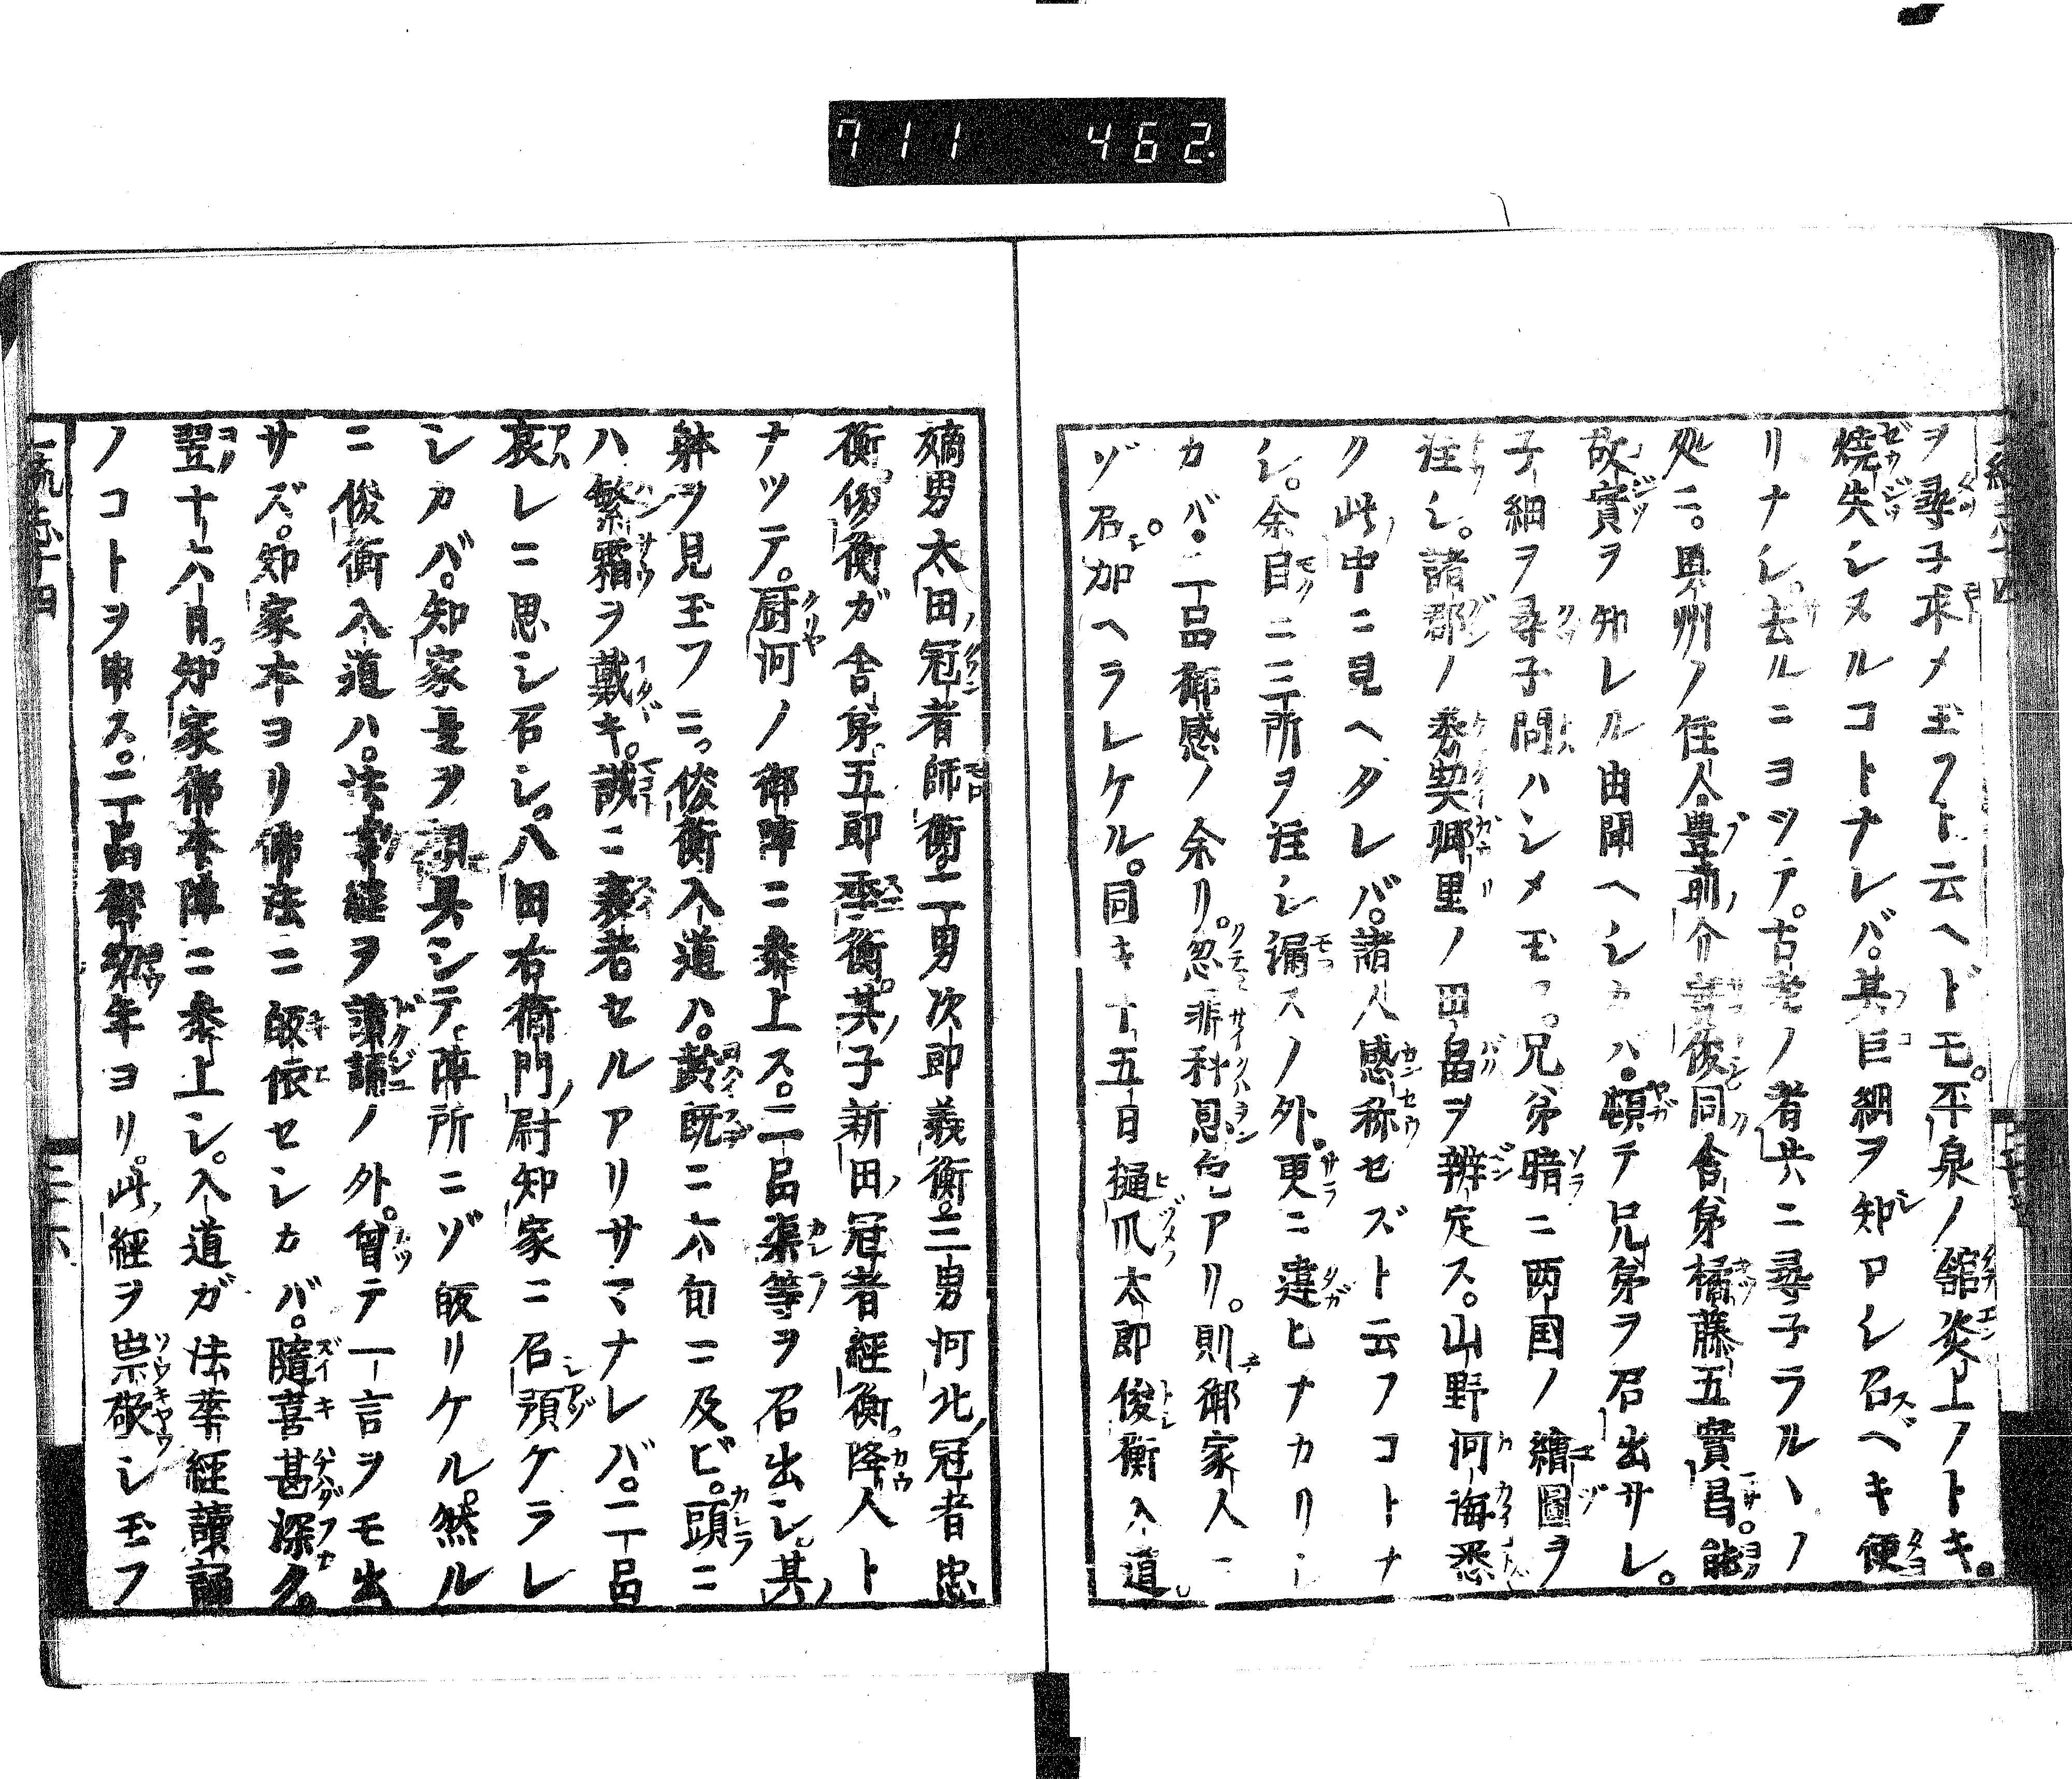 711 462
ヲ尋子求メ玉フト云ヘドモ。平泉ノ舘炎上ノトキ。
燒失シヌルコトナレバ。其巨細ヲ知ロシ召ベキ便
リナシ。去ルニヨツテ。古老ノ者共ニ尋子ラルヽノ
処ニ。奥州ノ住人。豊前介實俊同舎弟橘藤五實昌。能
故實ヲ知レル由聞ヘシカハ。頓テ兄弟ヲ召出サレ。
子細ヲ尋子問ハシメ玉フ。兄弟暗ニ両国ノ繪圖ヲ
注シ。諸郡ノ券契郷里ノ田畠ヲ辨定ス。山野河海悉
ク此中ニ見ヘタレバ。諸人感称セズト云フコトナ
シ。余目ニ三所ヲ注シ漏スノ外。更ニ違ヒナカリシ
カバ。二品御感ノ余リ。忽非科恩包アリ。則御家人ニ
ゾ召加ヘラレケル。同キ十五日樋爪太郎俊衡入道。
嫡男太田冠者師衡。二男次郎義衡。三男河北冠者忠
衡。俊衡ガ舎弟。五郎季衡。其子新田冠者經衡。降人ト
ナツテ。厨河ノ御陣ニ参上ス。二品渠等ヲ召出シ。其
躰ヲ見玉フニ。俊衡入道ハ。齡既ニ六旬ニ及ビ。頭ニ
ハ繁霜ヲ戴キ。誠ニ衰老セルアリサマナレバ。二品
哀レニ思シ召シ。八田右衛門尉知家ニ召預ケラレ
シカバ。知家是ヲ相具シテ。陣所ニゾ皈リケル。然ル
ニ俊衡入道ハ。法華經ヲ讀誦ノ外。曾テ一言ヲモ出
サズ。知家本ヨリ佛法ニ皈依セシカバ。隨喜甚深ク。
翌十六日。知家御本陣ニ参上シ。入道ガ法華經讀誦
ノコトヲ申ス。二品御幼年ヨリ。此經ヲ崇敬シ玉フ